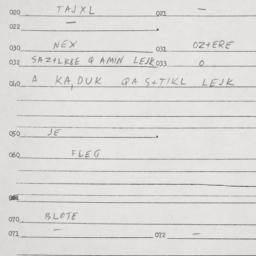 020 TAJXL 021 —
022 —
030 NEX 031 OZ+ERE
032 SAZ+LKLE Q AMIN LEJK 033 O
040 A KA,DUK QA S+TIKL LEJK
050 JE
060 FLEG
070 BLOTE
071 — 072 —